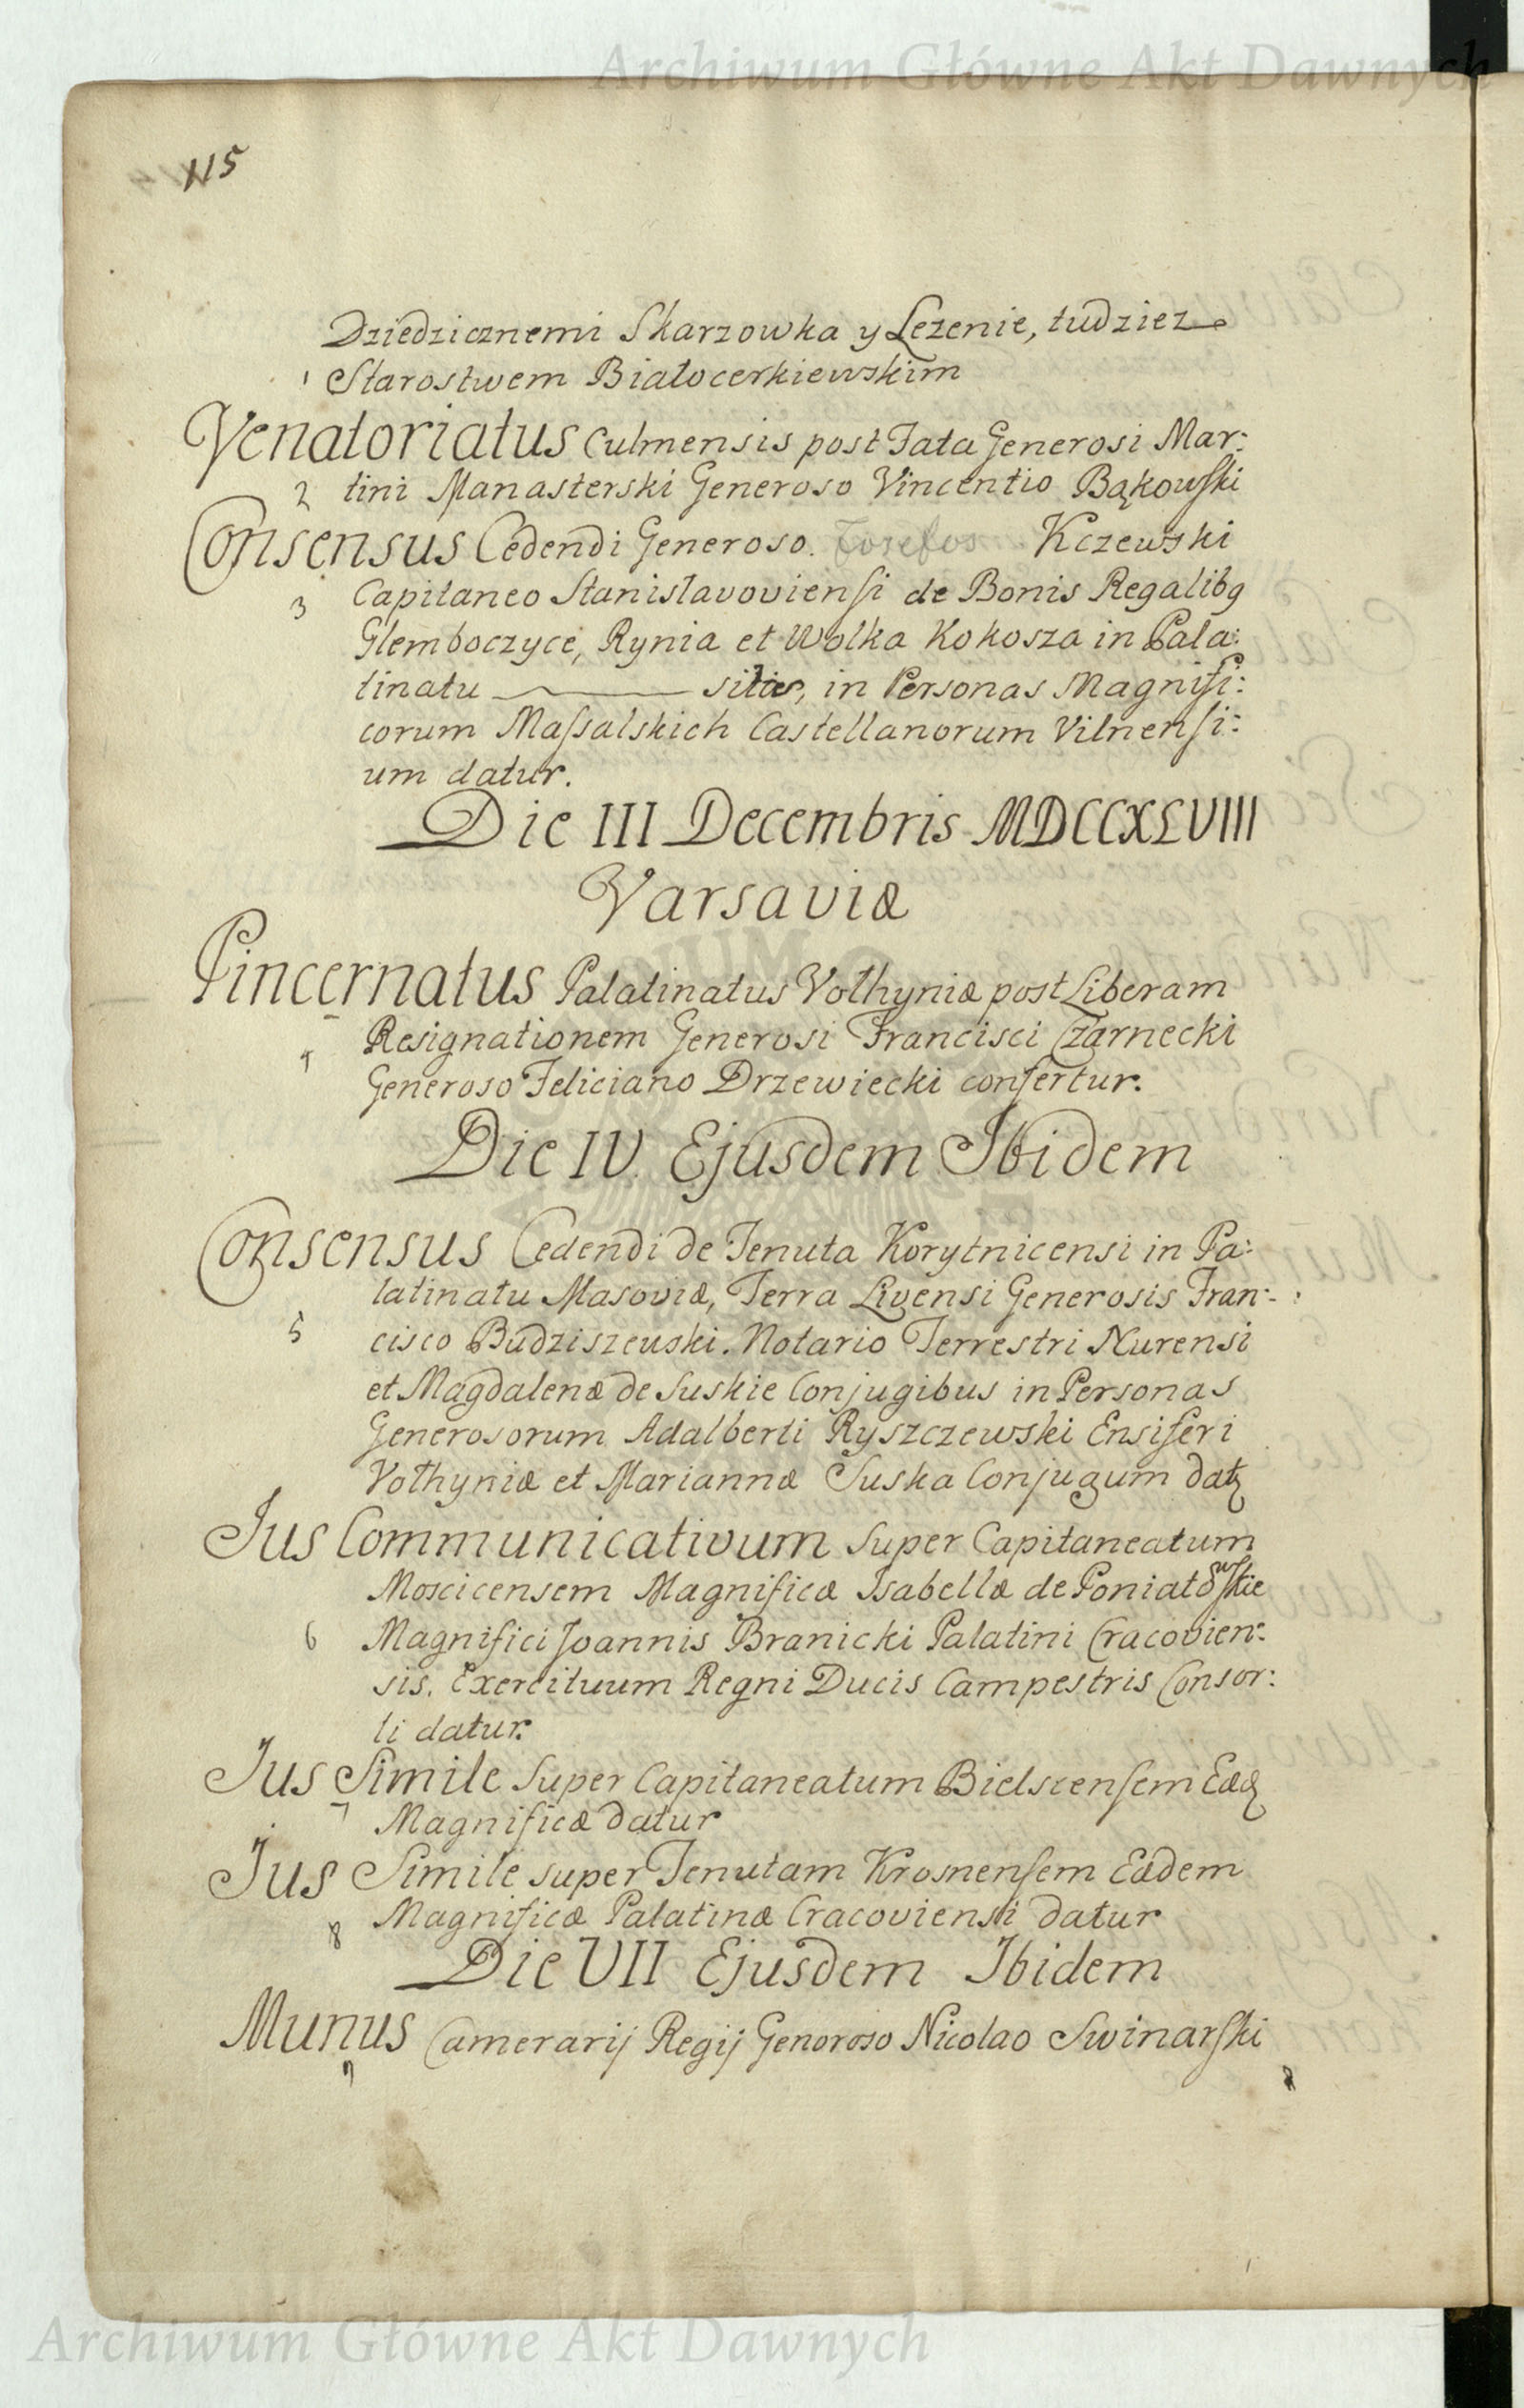 Archiwum Główne Akt Dawnych
115
Dziedzicznemi Skarzowka y Lezenie, tudziez
1 Starostwem Białocerkiewskim
Venatoriatus Culmensis post Fata Generosi Mar:
2 tini Manasterski Generoso Vincentio Bąkowski
Consensus Cedendi Generoso Kczewski
3 Capitaneo Stanislavoviensi de Bonis Regalibg
Glemboczyce, Rynia et Wolka Kokosza in Pala:
tinatu ——— sitis, in Personas Magnifi:
corum Massalskich Castellanorum Vilnensi:
um datur.
Die III Decembris MDCCXLVIII
Varsaviæ
Pincernatus Palatinatus Volhyniæ post Liberam
4 Resignationem Generosi Francisci Czarnecki
Generoso Feliciano Drzewiecki confertur.
Die IV Ejusdem Ibidem
Consensus Cedendi de Tenuta Korytnicensi in Pa:
latinatu Masoviæ, Terra Livensi Generosis Fran:
5 cisco Budziszewski. Notario Terrestri Nurensi
et Magdalenæ de Suskie Conjugibus in Personas
Generosorum Adalberti Ryszczewski Ensiferi
Volhyniæ et Mariannæ Suska Conjugum datz
Jus Communicativum super Capitaneatum
Moscicensem Magnificæ Isabellæ de Poniatowskie
6 Magnifici Joannis Branicki Palatini Cracovien:
sis. Exercituum Regni Ducis Campestris Consor:
ti datur.
Jus Simile super Capitaneatum Bielscensem Eædz
7 Magnificæ datur
Jus Simile super Tenutam Krosnensem Eædem
8 Magnificæ Palatinæ Cracoviensi datur
Die VII Ejusdem Ibidem
Munus Camerarij Regij Generoso Nicolao Swinarski
9
Archiwum Główne Akt Dawnych